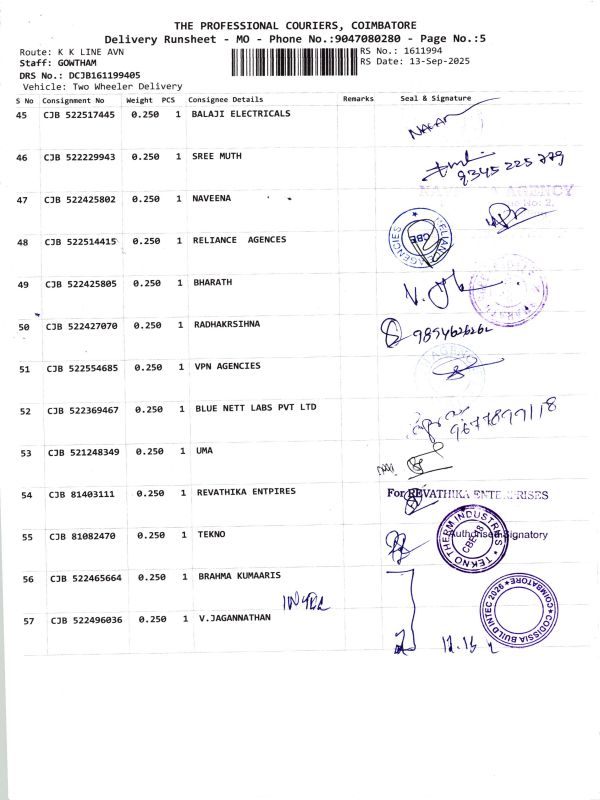 THE PROFESSIONAL COURIERS, COIMBATORE
Delivery Runsheet - MO - Phone No.:9047080280 - Page No.:5
Route: K K LINE AVN
RS No.: 1611994
Staff: GOWTHAM
RS Date: 13-Sep-2025
DRS No.: DCJB161199405
Vehicle: Two Wheeler Delivery
S No Consignment No Weight PCS Consignee Details Remarks Seal & Signature
45 CJB 522517445 0.250 1 BALAJI ELECTRICALS
46 CJB 522229943 0.250 1 SREE MUTH
9345 225 779
AGENCY
No: 2,
47 CJB 522425802 0.250 1 NAVEENA
48 CJB 522514415 0.250 1 RELIANCE AGENCES
RELIANCE AGENCIES CBE
49 CJB 522425805 0.250 1 BHARATH
50 CJB 522427070 0.250 1 RADHAKRSIHNA
51 CJB 522554685 0.250 1 VPN AGENCIES
52 CJB 522369467 0.250 1 BLUE NETT LABS PVT LTD
53 CJB 521248349 0.250 1 UMA
54 CJB 81403111 0.250 1 REVATHIKA ENTPIRES
For REVATHIKA ENTERPRISES
Authorised Signatory
55 CJB 81082470 0.250 1 TEKNO
TEKNO THERM INDUSTRIES
56 CJB 522465664 0.250 1 BRAHMA KUMAARIS
CODISSIA BUILD INTEC 2026 COIMBATORE
57 CJB 522496036 0.250 1 V.JAGANNATHAN